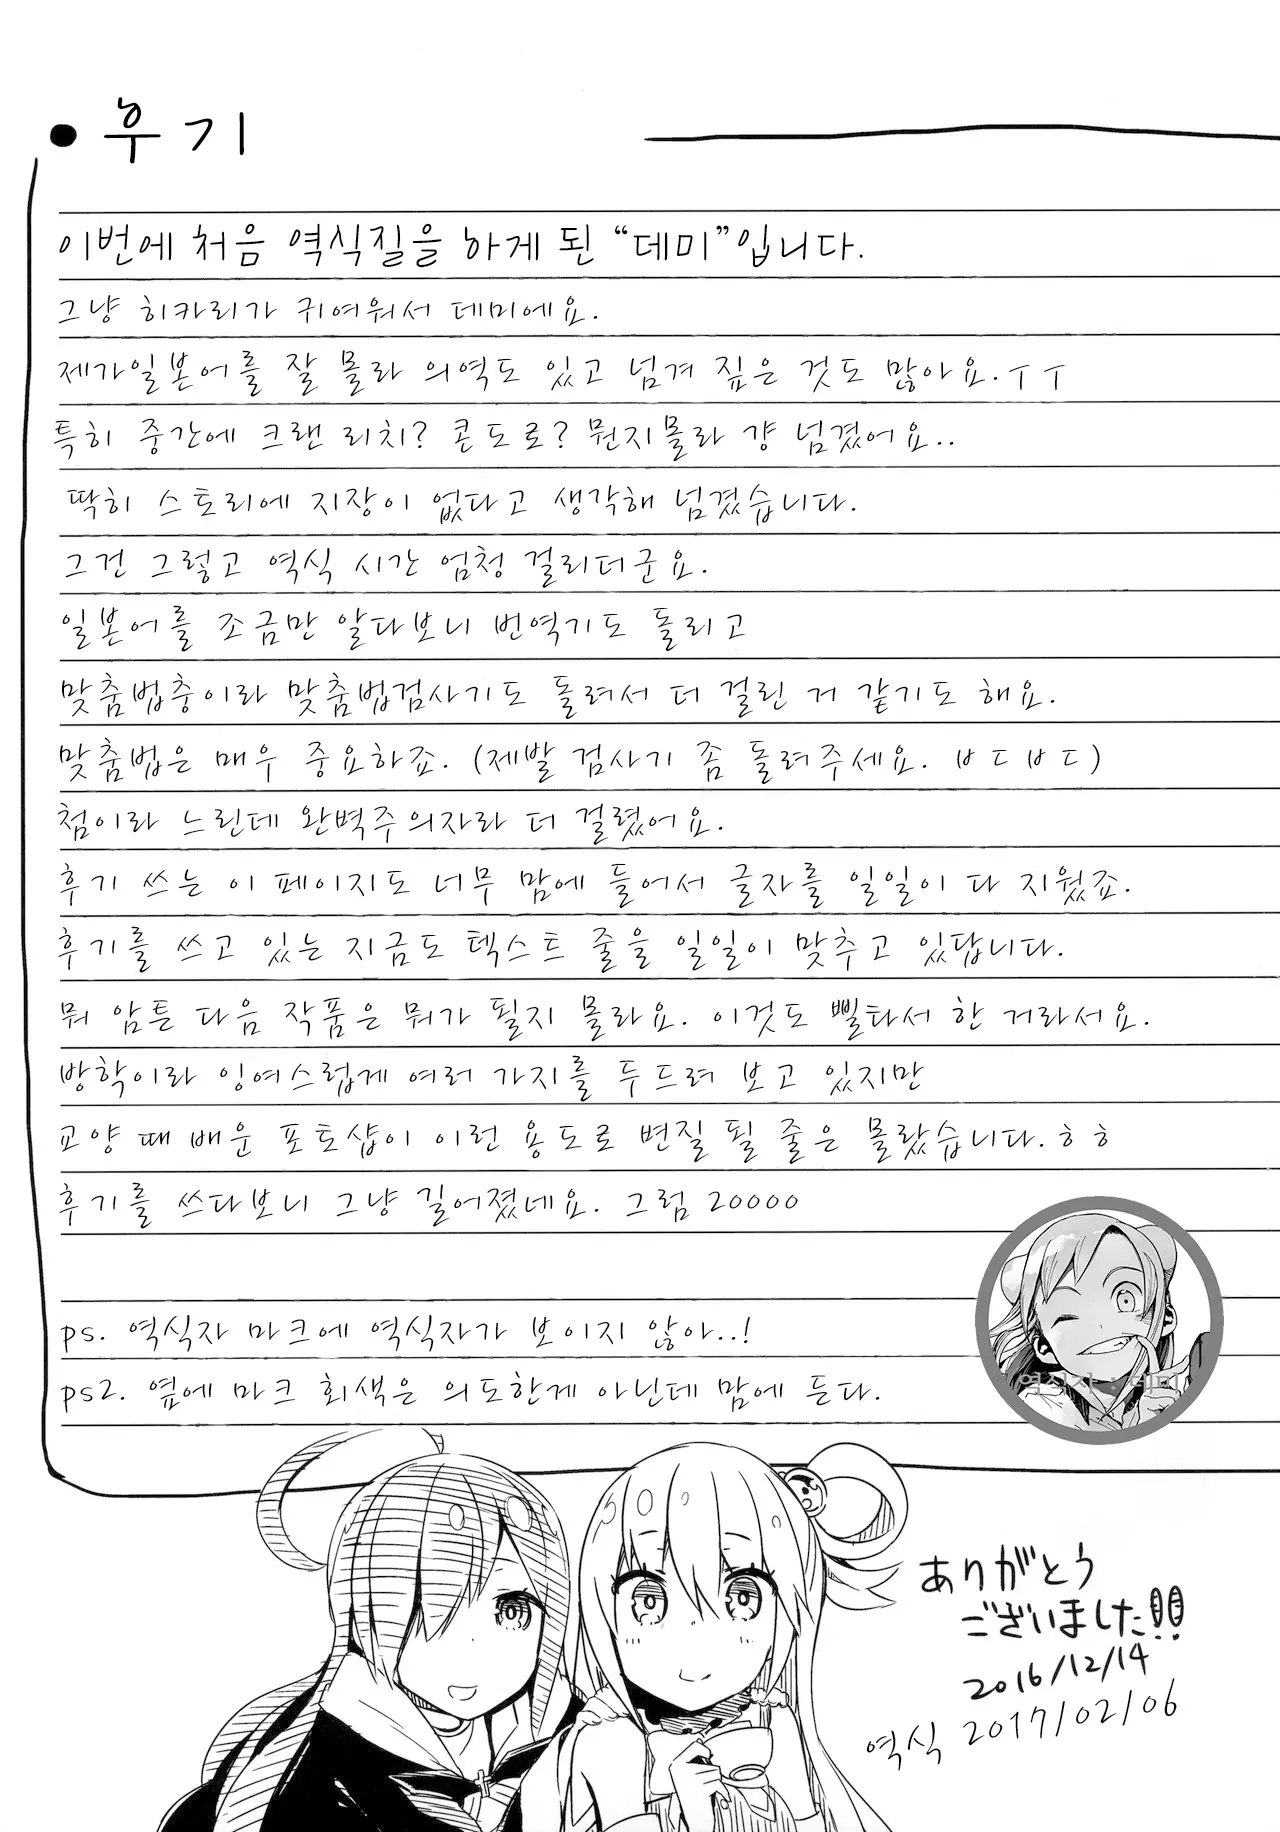 • 후기
이번에 처음 역식질을 하게 된 “데미”입니다.
그냥 히카리가 귀여워서 데미에요.
제가일본어를 잘 몰라 의역도 있고 넘겨 짚은 것도 많아요.ㅜㅜ
특히 중간에 크랜 리치? 콘도로? 뭔지몰라 걍 넘겼어요..
딱히 스토리에 지장이 없다고 생각해 넘겼습니다.
그건 그렇고 역식 시간 엄청 걸리더군요.
일본어를 조금만 알다보니 번역기도 돌리고
맞춤법충이라 맞춤법검사기도 돌려서 더 걸린 거 같기도 해요.
맞춤법은 매우 중요하죠. (제발 검사기 좀 돌려주세요. ㅂㄷㅂㄷ)
첨이라 느린데 완벽주의자라 더 걸렸어요.
후기 쓰는 이 페이지도 너무 맘에 들어서 글자를 일일이 다 지웠죠.
후기를 쓰고 있는 지금도 텍스트 줄을 일일이 맞추고 있답니다.
뭐 암튼 다음 작품은 뭐가 될지 몰라요. 이것도 삘타서 한 거라서요.
방학이라 잉여스럽게 여러 가지를 두드려 보고 있지만
교양 때 배운 포토샵이 이런 용도로 변질 될 줄은 몰랐습니다.ㅎㅎ
후기를 쓰다보니 그냥 길어졌네요. 그럼 20000
ps. 역식자 마크에 역식자가 보이지 않아..!
ps2. 옆에 마크 회색은 의도한게 아닌데 맘에 든다.
역식자 : 데미
ありがとう
ございました!!
2016/12/14
역식 2017/02/06